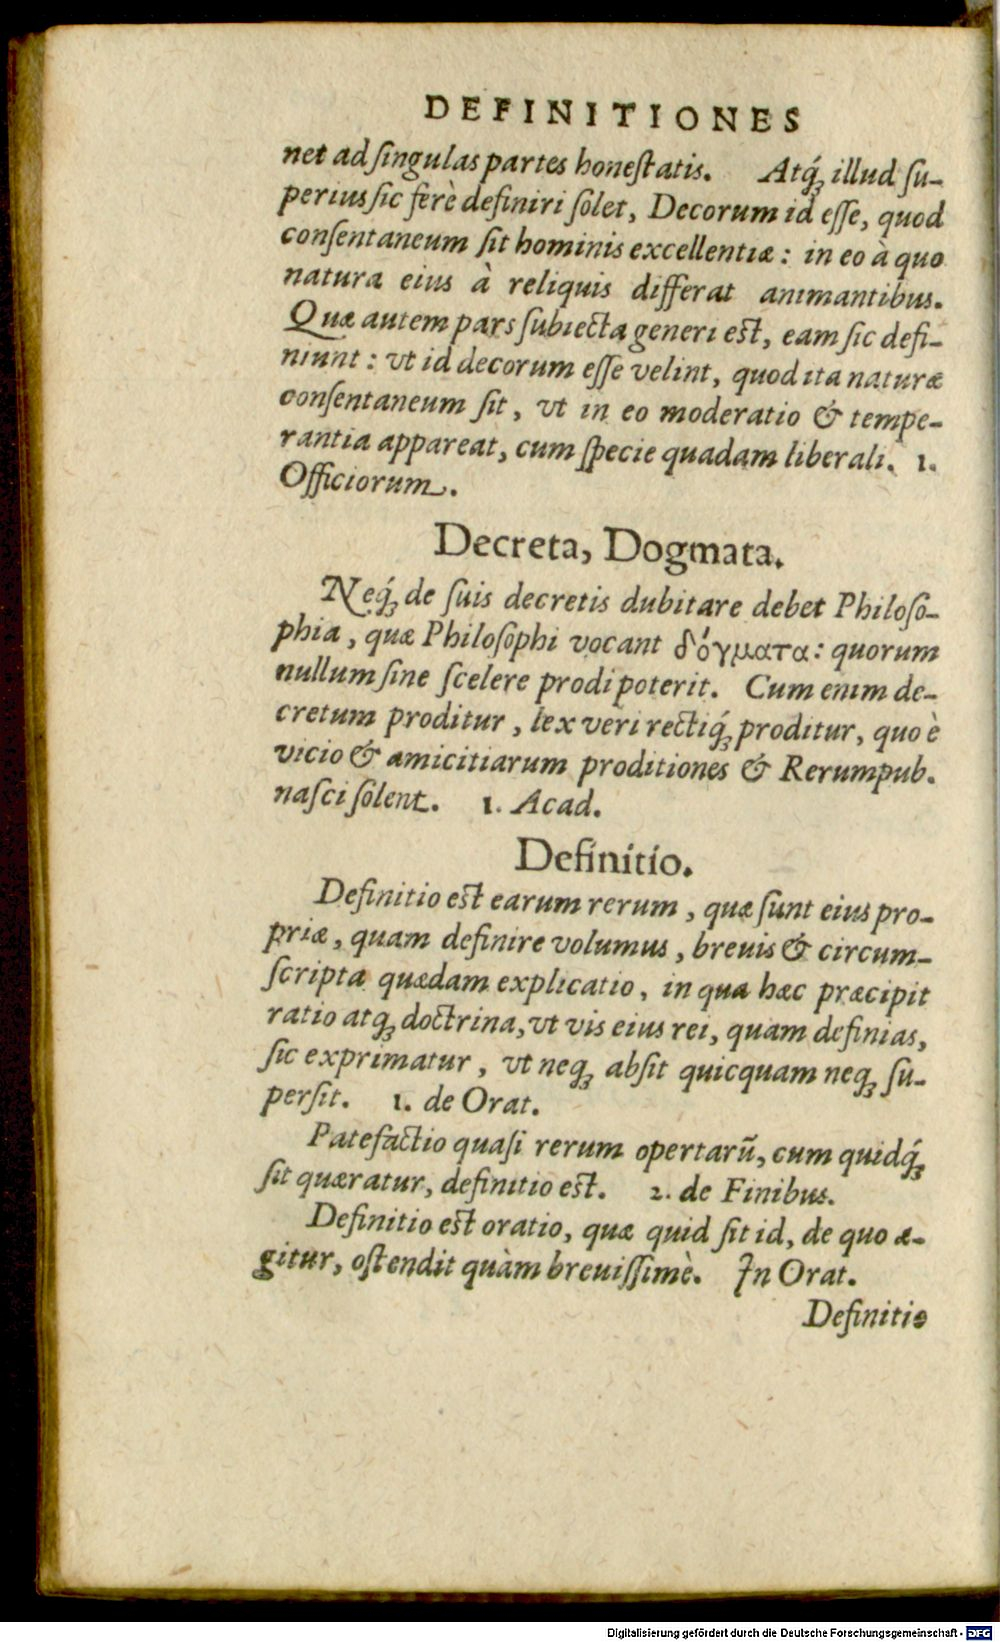 DEFINITIONES
net ad ſingulas partes honeſtatis. Atq́ꝫ illud ſu-
perius ſic ferè definiri ſolet, Decorum id eſſe, quod
conſentaneum ſit hominis excellentiæ: in eo à quo
natura eius à reliquis differat animantibus.
Quæ autem pars ſubiecta generi eſt, eam ſic defi-
niunt: vt id decorum eſſe velint, quod ita naturæ
conſentaneum ſit, vt in eo moderatio & tempe-
rantia appareat, cum ſpecie quadam liberali. 1.
Officiorum.
Decreta, Dogmata.
Neq́ꝫ de ſuis decretis dubitare debet Philoſo-
phia, quæ Philoſophi vocant δόγματα: quorum
nullum ſine ſcelere prodi poterit. Cum enim de-
cretum proditur, lex veri rectiq́ꝫ proditur, quo è
vicio & amicitiarum proditiones & Rerumpub.
naſci ſolent. 1. Acad.
Definitio.
Definitio eſt earum rerum, quæ ſunt eius pro-
priæ, quam definire volumus, breuis & circum-
ſcripta quædam explicatio, in qua hæc præcipit
ratio atqꝫ doctrina, vt vis eius rei, quam definias,
ſic exprimatur, vt neqꝫ abſit quicquam neqꝫ ſu-
perſit. 1. de Orat.
Patefactio quaſi rerum opertarũ, cum quidq́ꝫ
ſit quæratur, definitio eſt. 2. de Finibus.
Definitio eſt oratio, quæ quid ſit id, de quo æ-
gitur, oſtendit quàm breuiſſimè. In Orat.
Definitio
Digitalisierung gefördert durch die Deutsche Forschungsgemeinschaft - DFG